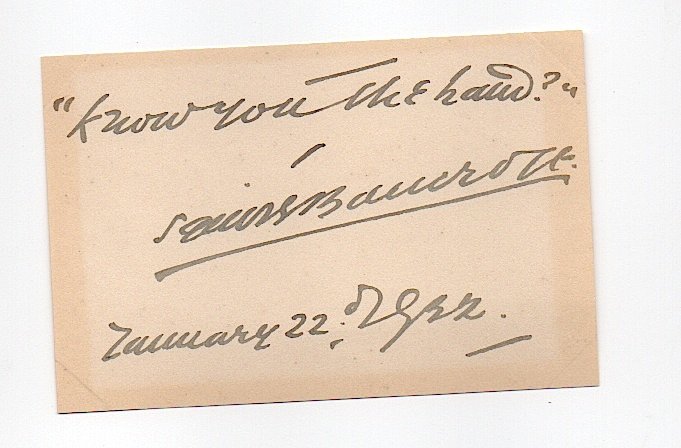 "Know you the hand?"
Squire Bancroft.
January 22.d 1922.